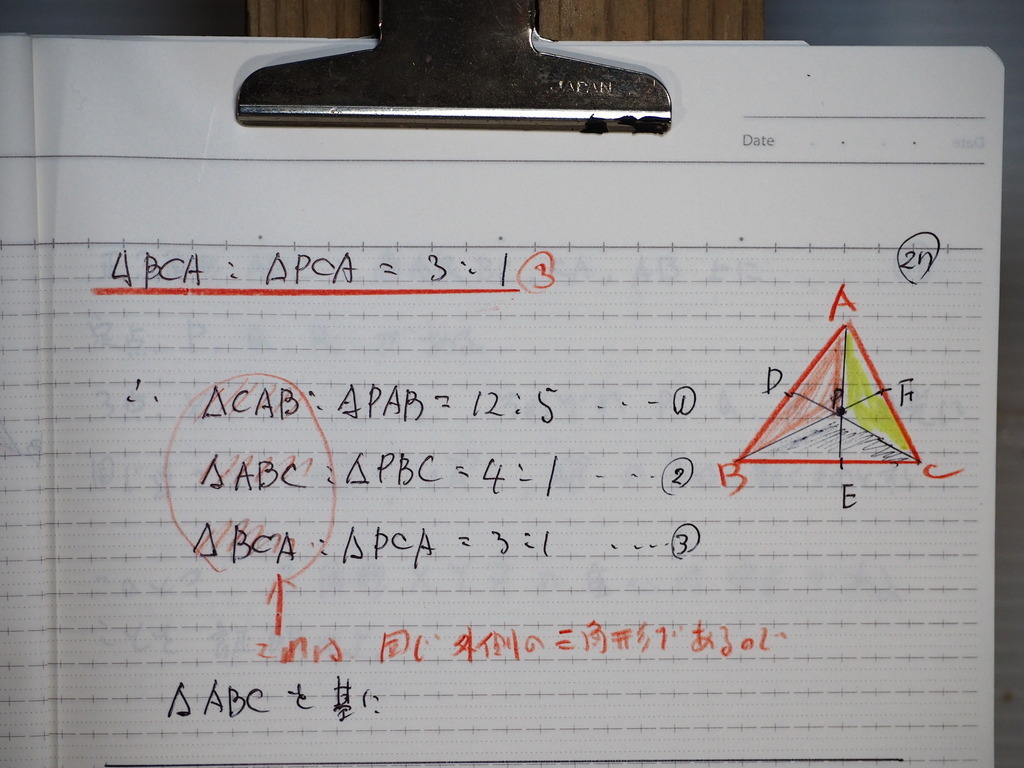 JAPAN
Date
㉗
△BCA : △PCA = 3 : 1 ③
∴ △CAB : △PAB = 12 : 5 ････①
△ABC : △PBC = 4 : 1 ････②
△BCA : △PCA = 3 : 1 ････③
↑
これは 同じ外側の三角形であるので
△ABCを基に
A
D
P
F
B
C
E